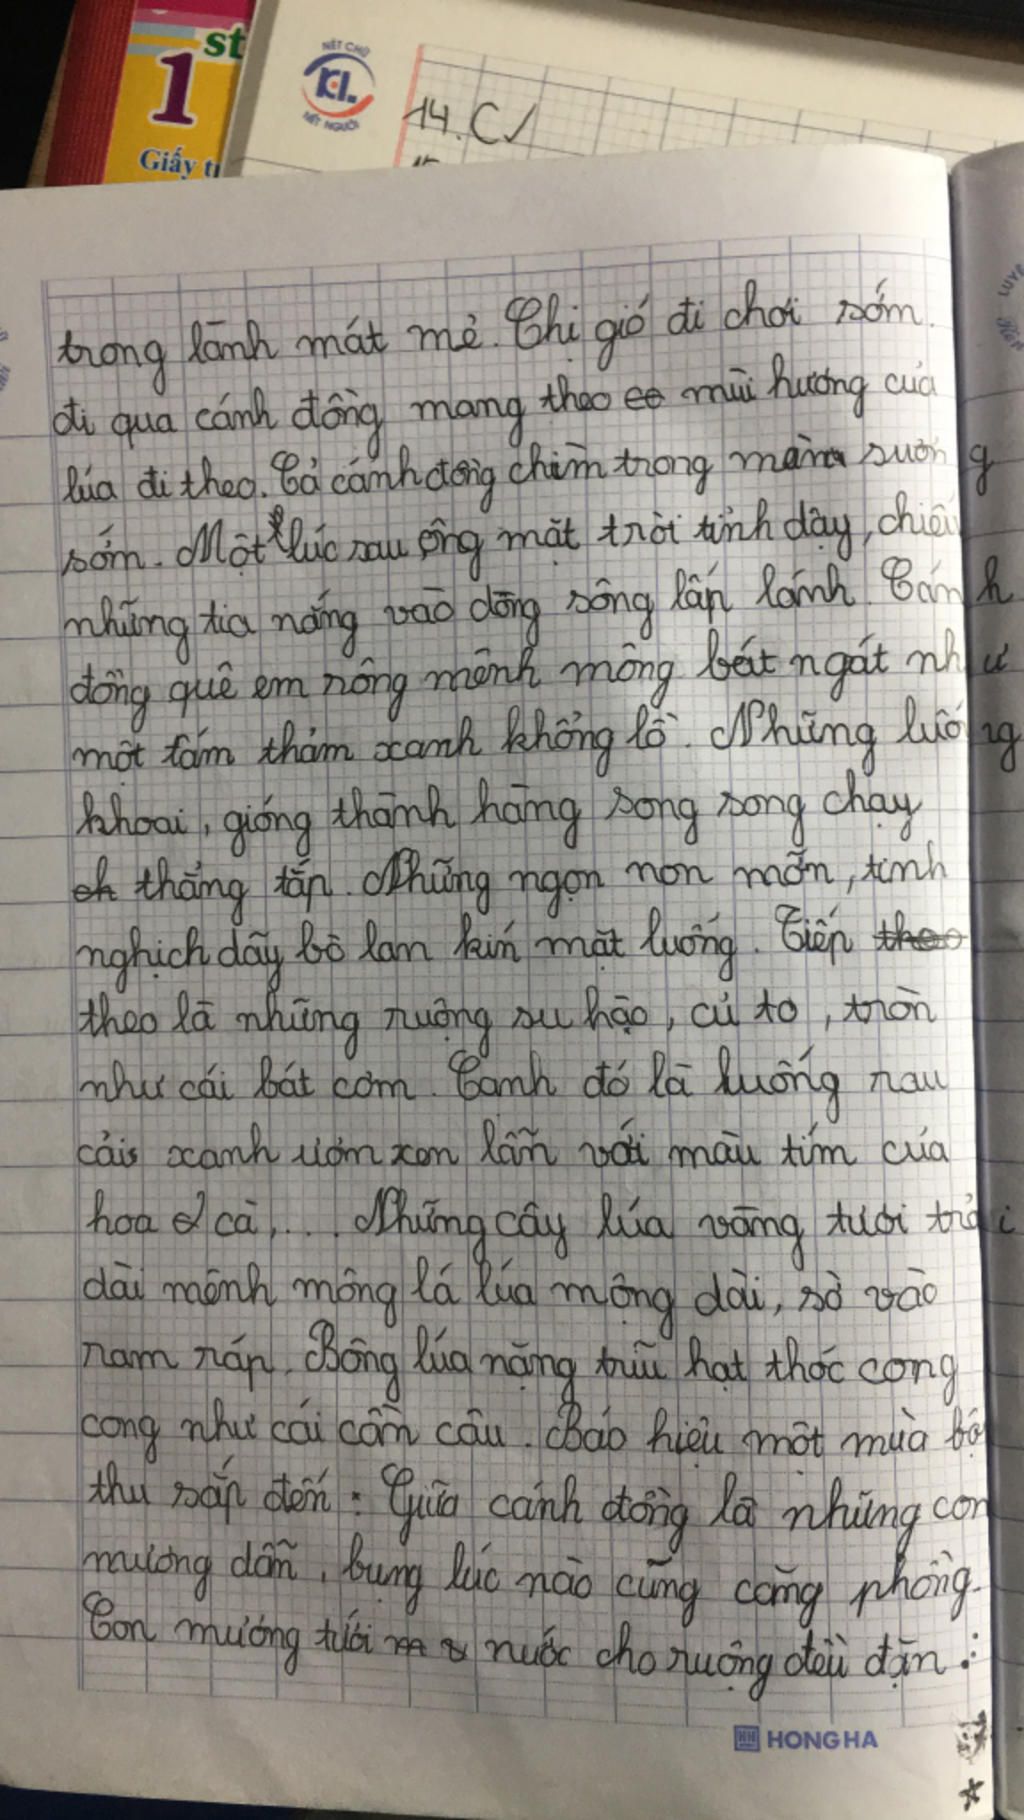 1st
Giấy
NÉT CHỮ
KL
NẾT NGƯỜI
14. C
trong lành mát mẻ. Chị gió đi chơi sớm.
đi qua cánh đồng mang theo mùi hương của
lúa đi theo. Cả cánh đồng chìm trong màn sương
sớm. Một lúc sau ông mặt trời tỉnh dậy, chiếu
những tia nắng vào dòng sông lấp lánh. Cánh
đồng quê em rộng mênh mông bát ngát như
một tấm thảm xanh khổng lồ. Những luống
khoai, gióng thành hàng song song chạy
thẳng tắp. Những ngọn non mơn, tinh
nghịch dãy bò lan kín mặt luống. Tiếp theo
theo là những ruộng su hào, củ to, tròn
như cái bát cơm. Cạnh đó là luống rau
cải xanh ươm xen lẫn với màu tím của
hoa cà,... Những cây lúa vàng tươi trải
dài mênh mông lá lúa mỏng dài, sờ vào
ram ráp. Bông lúa nặng trĩu hạt thóc cong
cong như cái cần câu. Báo hiệu một mùa bội
thu sắp đến. Giữa cánh đồng là những con
mương dẫn, bụng lúc nào cũng căng phồng.
Con mương tưới nước cho ruộng đều đặn.
HONG HA